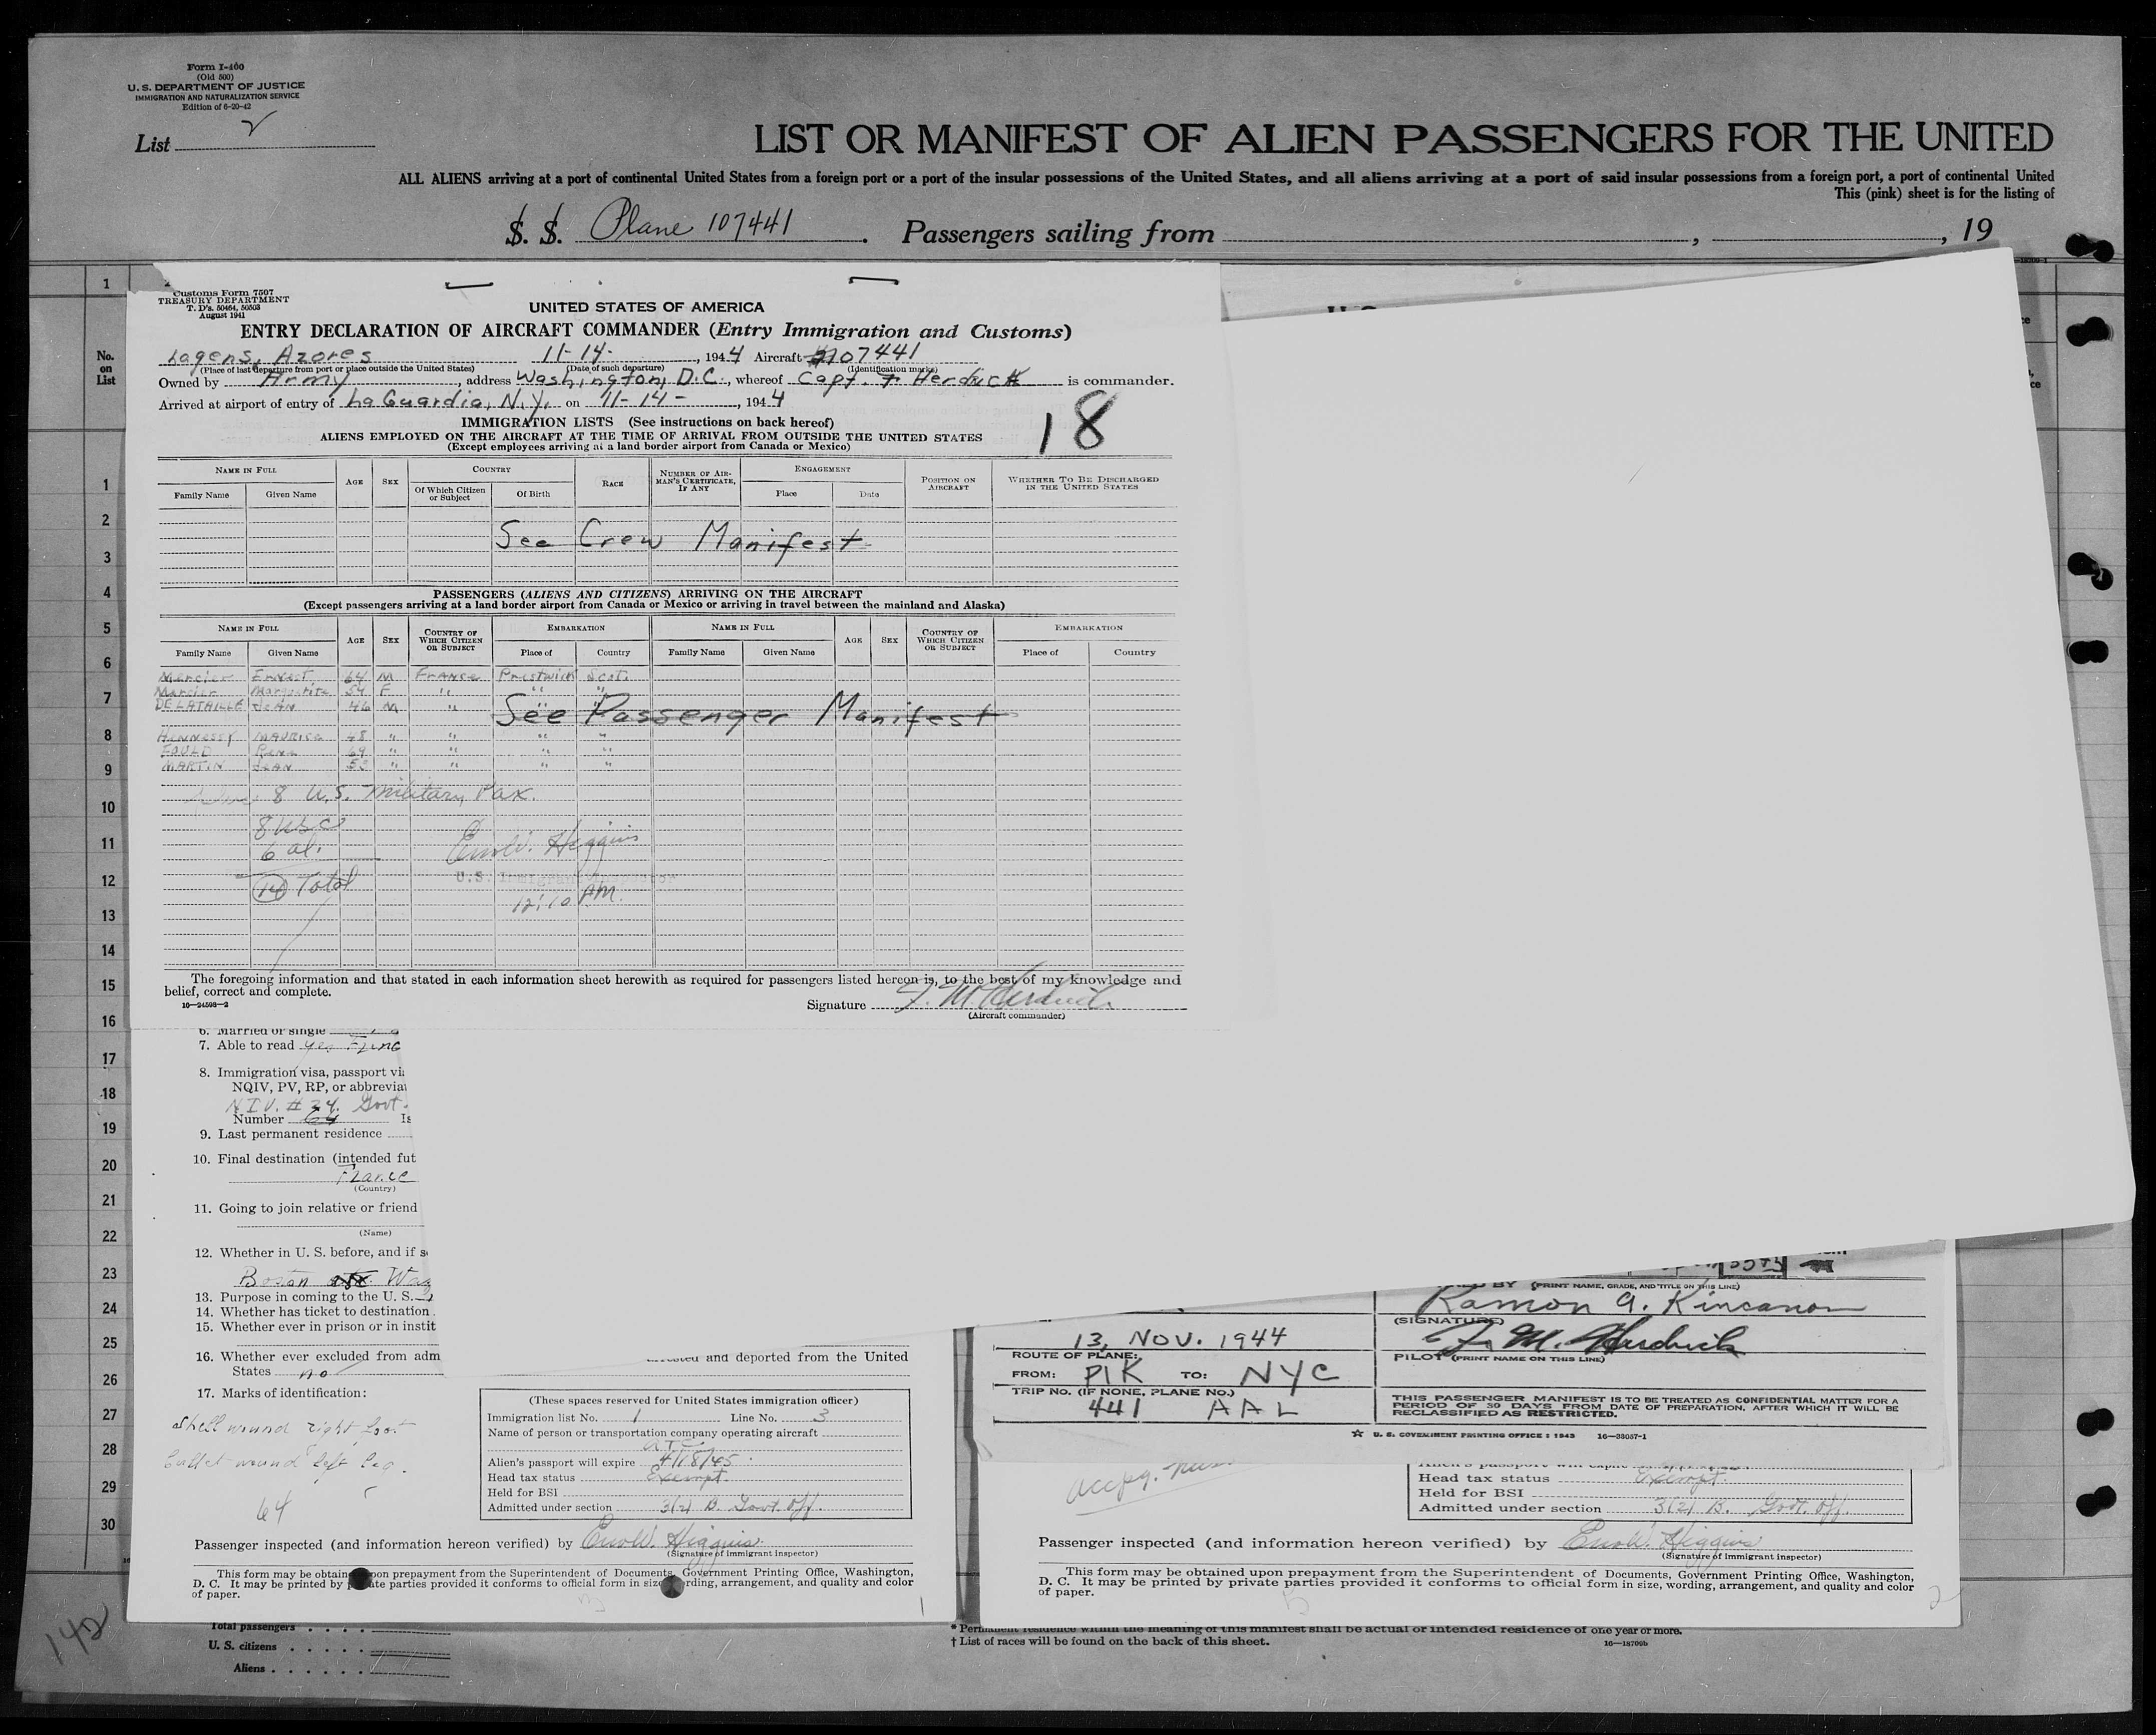 Form I-400
(Old 500)
U. S. DEPARTMENT OF JUSTICE
IMMIGRATION AND NATURALIZATION SERVICE
Edition of 6-20-42
List 2
LIST OR MANIFEST OF ALIEN PASSENGERS FOR THE UNITED
ALL ALIENS arriving at a port of continental United States from a foreign port or a port of the insular possessions of the United States, and all aliens arriving at a port of said insular possessions from a foreign port, a port of continental United
This (pink) sheet is for the listing of
S. S. Plane 107441. Passengers sailing from , , 19
Customs Form 7507
TREASURY DEPARTMENT
T. D's. 50464, 50503
August 1941
UNITED STATES OF AMERICA
ENTRY DECLARATION OF AIRCRAFT COMMANDER (Entry Immigration and Customs)
Lagens, Azores 11-14- , 1944 Aircraft 107441
(Place of last departure from port or place outside the United States) (Date of such departure) (Identification marks)
Owned by Army, address Washington, D.C., whereof Capt. F Herdrick is commander.
Arrived at airport of entry of La Guardia, N.Y. on 11-14-, 1944
18
IMMIGRATION LISTS (See instructions on back hereof)
ALIENS EMPLOYED ON THE AIRCRAFT AT THE TIME OF ARRIVAL FROM OUTSIDE THE UNITED STATES
(Except employees arriving at a land border airport from Canada or Mexico)
NAME IN FULL AGE SEX COUNTRY RACE NUMBER OF AIRMAN'S CERTIFICATE, IF ANY ENGAGEMENT POSITION ON AIRCRAFT WHETHER TO BE DISCHARGED IN THE UNITED STATES
Family Name Given Name Of Which Citizen or Subject Of Birth Place Date
See Crew Manifest
PASSENGERS (ALIENS AND CITIZENS) ARRIVING ON THE AIRCRAFT
(Except passengers arriving at a land border airport from Canada or Mexico or arriving in travel between the mainland and Alaska)
NAME IN FULL AGE SEX COUNTRY OF WHICH CITIZEN OR SUBJECT EMBARKATION NAME IN FULL AGE SEX COUNTRY OF WHICH CITIZEN OR SUBJECT EMBARKATION
Family Name Given Name Place of Country Family Name Given Name Place of Country
Mercier Ernest 64 M France Prestwick Scot.
Mercier Marguerite 54 F " " "
DE LATAILLE JEAN 46 M " " "
See Passenger Manifest
Hennessy MAURICE 48 " " " "
FOULD Rene 69 " " " "
MARTIN JEAN 53 " " " "
8 U.S. Military Pax.
8 USC
6 al.
14 Total
Higgins
U.S. Immigrant Inspector
12:10 AM.
The foregoing information and that stated in each information sheet herewith as required for passengers listed hereon is, to the best of my knowledge and
belief, correct and complete.
16—24598-2
Signature F. M. Herdrick
(Aircraft commander)
6. Married or single
7. Able to read yes
8. Immigration visa, passport vi
NQIV, PV, RP, or abbrevia
NIV. #24. Govt.
Number 64 Is
9. Last permanent residence
10. Final destination (intended fut
France
(Country)
11. Going to join relative or friend
(Name)
12. Whether in U. S. before, and if s
Boston
13. Purpose in coming to the U. S.
14. Whether has ticket to destination
15. Whether ever in prison or in instit
16. Whether ever excluded from adm
and deported from the United
States no
17. Marks of identification:
Shell wound right foot
Bullet wound left leg.
64
(These spaces reserved for United States immigration officer)
Immigration list No. 1 Line No. 3
Name of person or transportation company operating aircraft
ATC
Alien's passport will expire 4/18/45
Head tax status Exempt
Held for BSI
Admitted under section 3(2) B. Govt. off.
Passenger inspected (and information hereon verified) by Higgins
(Signature of immigrant inspector)
This form may be obtained upon prepayment from the Superintendent of Documents, Government Printing Office, Washington,
D. C. It may be printed by private parties provided it conforms to official form in size, wording, arrangement, and quality and color
of paper.
1
(PRINT NAME, GRADE, AND TITLE ON THIS LINE)
Ramon A. Kincanon
(SIGNATURE)
F. M. Herdrick
PILOT (PRINT NAME ON THIS LINE)
13, NOV. 1944
ROUTE OF PLANE:
FROM: PIK TO: NYC
TRIP NO. (IF NONE, PLANE NO.)
441 AAL
THIS PASSENGER MANIFEST IS TO BE TREATED AS CONFIDENTIAL MATTER FOR A
PERIOD OF 30 DAYS FROM DATE OF PREPARATION, AFTER WHICH IT WILL BE
RECLASSIFIED AS RESTRICTED.
☆ U. S. GOVERNMENT PRINTING OFFICE : 1943 16—33057-1
accpg.
Head tax status Exempt
Held for BSI
Admitted under section 3(2) B. Govt. off.
Passenger inspected (and information hereon verified) by Higgins
(Signature of immigrant inspector)
This form may be obtained upon prepayment from the Superintendent of Documents, Government Printing Office, Washington,
D. C. It may be printed by private parties provided it conforms to official form in size, wording, arrangement, and quality and color
of paper.
2
142
Total passengers
U. S. citizens
Aliens
* Permanent residence within the meaning of this manifest shall be actual or intended residence of one year or more.
† List of races will be found on the back of this sheet.
16—18709b
No. on List
1
1
2
3
4
5
6
7
8
9
10
11
12
13
14
15
16
17
18
19
20
21
22
23
24
25
26
27
28
29
30